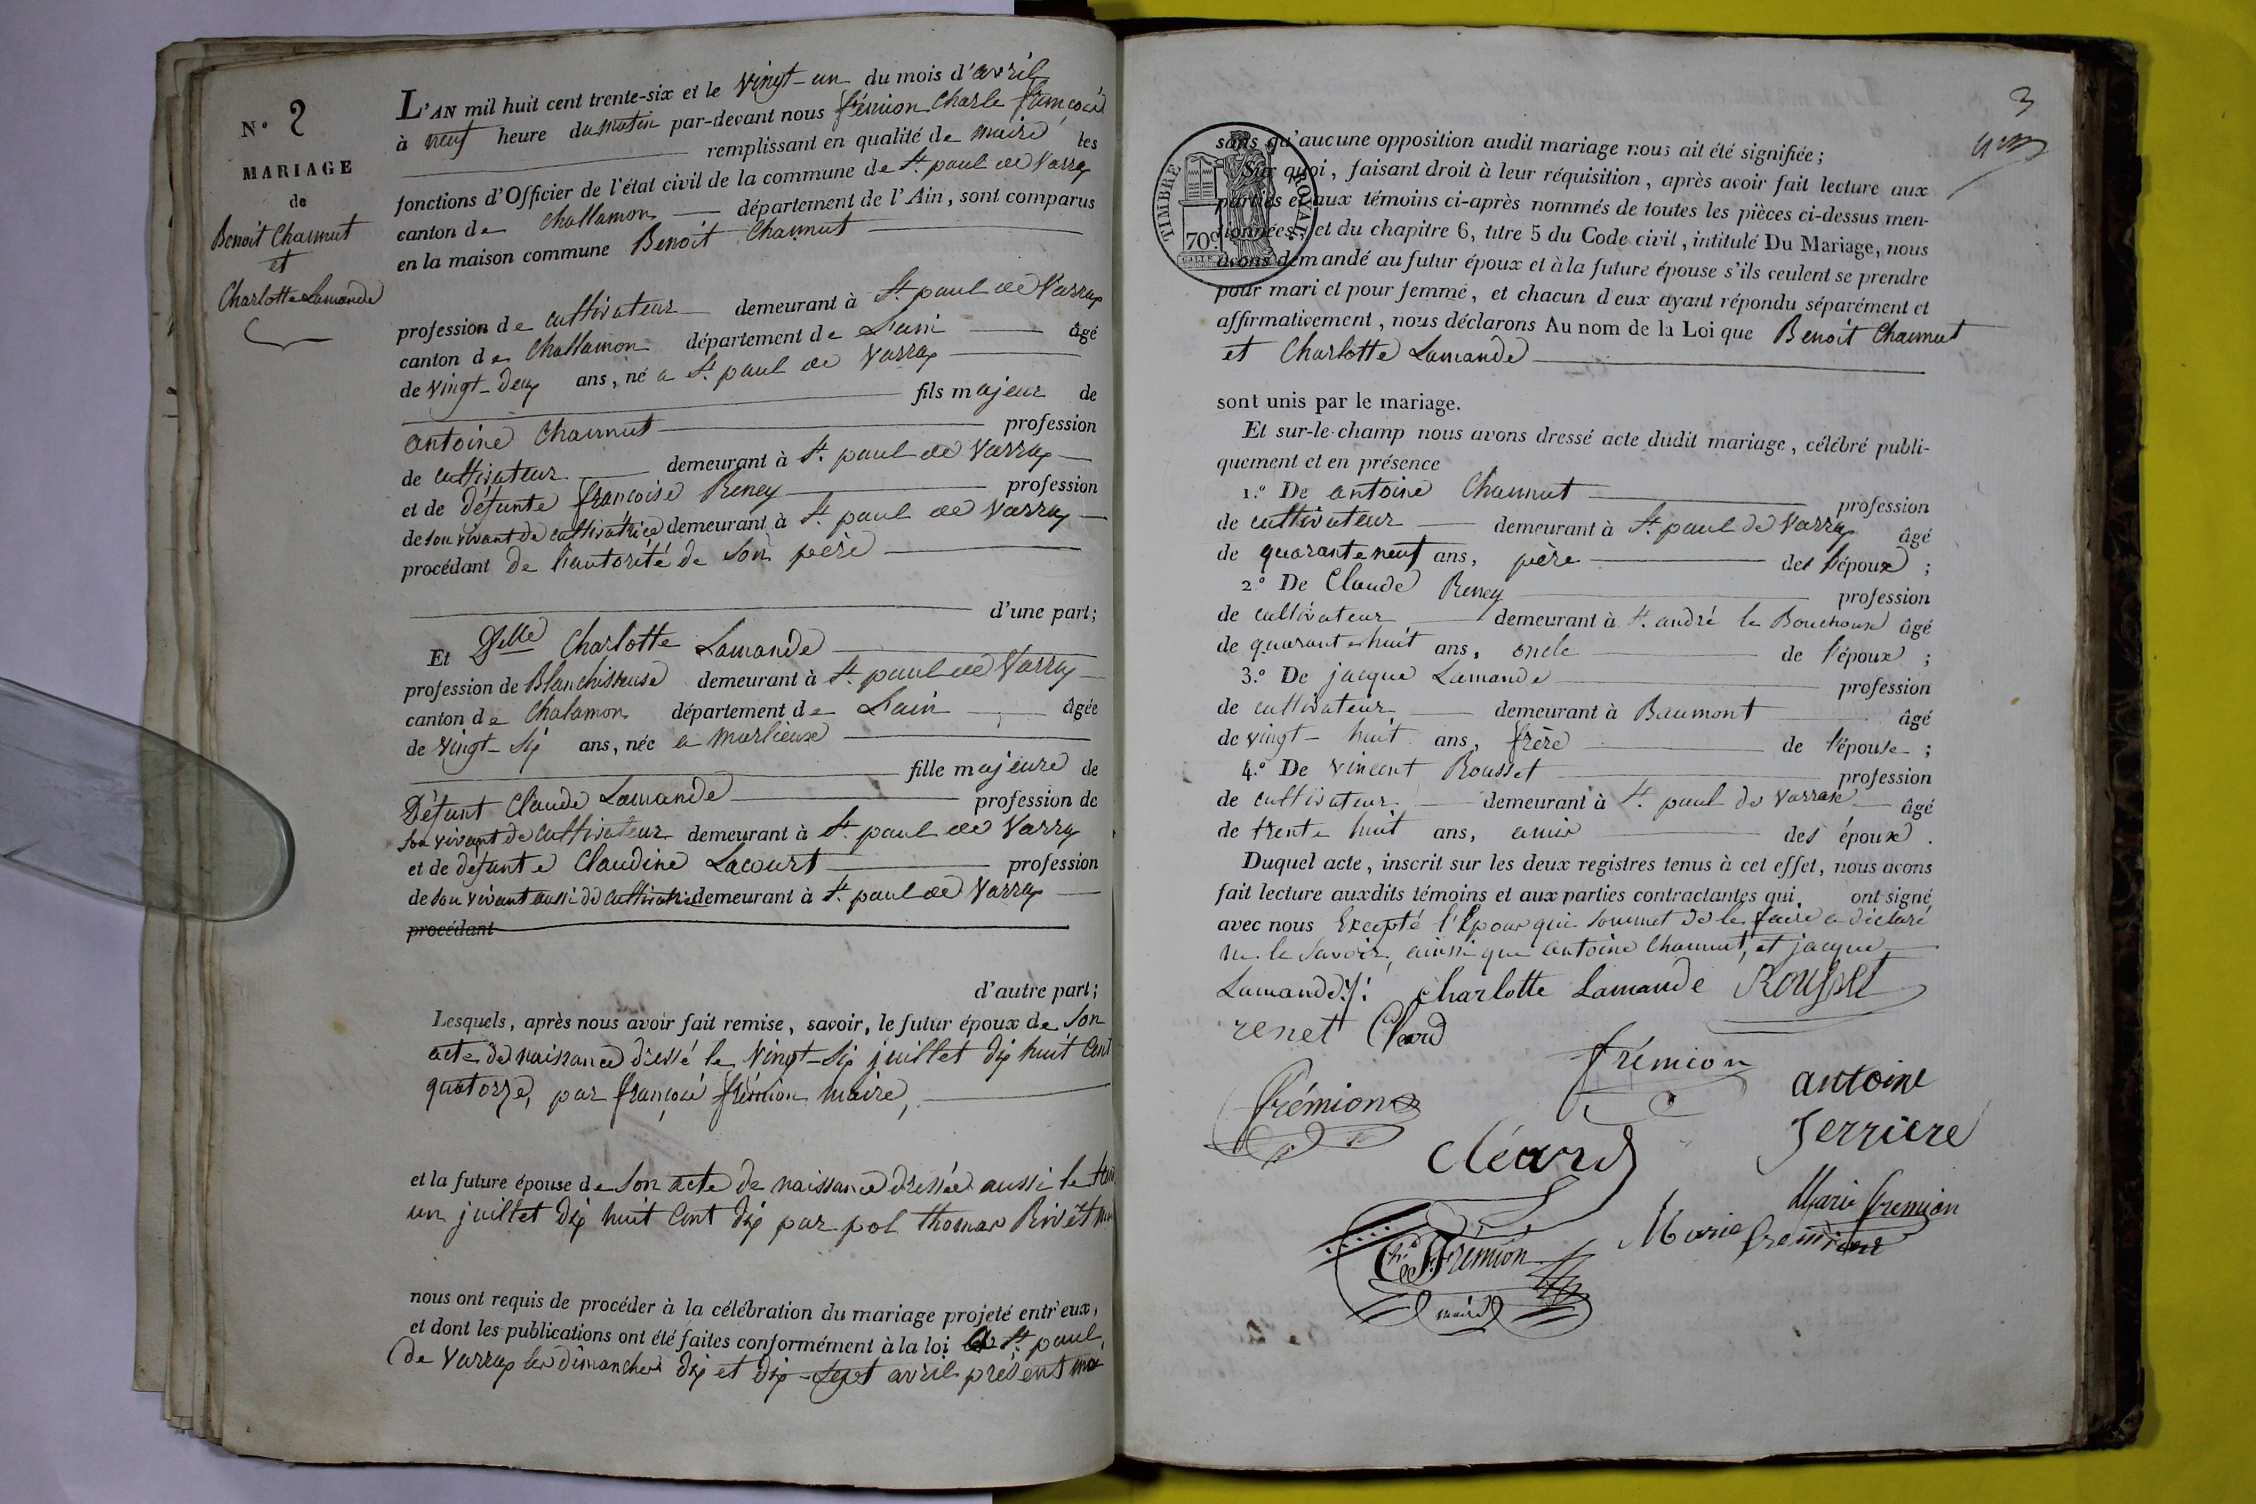 N° 2
MARIAGE
de
Benoit Chaunut
et
Charlotte Lamande
L'AN mil huit cent trente-six et le vingt-un du mois d'avril
à neuf heure du matin par-devant nous frémion Charle françois
remplissant en qualité de maire les
fonctions d'Officier de l'état civil de la commune de St. paul de Varax
canton de Challamon département de l'Ain, sont comparus
en la maison commune Benoit Chaunut
profession de cultivateur demeurant à St. paul de Varax
canton de Challamon département de L'ain âgé
de vingt-deux ans, né a St. paul de Varax
fils majeur de
antoine Chaunut profession
de cultivateur demeurant à St. paul de Varax
et de défunte françoise Reney profession
de son vivant de cultivatrice demeurant à St. paul de Varax
procédant de l'autorité de son père
d'une part;
Et Delle Charlotte Lamande
profession de Blanchisseuse demeurant à St. paul de Varax
canton de Chalamon département de L'ain âgée
de vingt-six ans, née a marlieux
fille majeure de
Défunt Claude Lamande profession de
son vivant de cultivateur demeurant à St. paul de Varax
et de défunte Claudine Lacourt profession
de son vivant aussi de cultivatrice demeurant à St. paul de Varax
procédant
d'autre part;
Lesquels, après nous avoir fait remise, savoir, le futur époux de son
acte de naissance dressé le vingt-six juillet dix huit cent
quatorze, par françois frémion maire,
et la future épouse de son acte de naissance dressée aussi le
un juillet dix huit cent dix par pol thomas Rivet
nous ont requis de procéder à la célébration du mariage projeté entr'eux,
et dont les publications ont été faites conformément à la loi a St. paul
de Varax les dimanches dix et dix-sept avril présent
3
sans qu'aucune opposition audit mariage nous ait été signifiée;
Sur quoi, faisant droit à leur réquisition, après avoir fait lecture aux
parties et aux témoins ci-après nommés de toutes les pièces ci-dessus men-
tionnées, et du chapitre 6, titre 5 du Code civil, intitulé Du Mariage, nous
avons demandé au futur époux et à la future épouse s'ils veulent se prendre
pour mari et pour femme, et chacun d'eux ayant répondu séparément et
affirmativement, nous déclarons Au nom de la Loi que Benoit Chaunut
et Charlotte Lamande
TIMBRE ROYAL
70c.
sont unis par le mariage.
Et sur-le-champ nous avons dressé acte dudit mariage, célébré publi-
quement et en présence
1.° De antoine Chaunut profession
de cultivateur demeurant à St. paul de Varax âgé
de quarante neuf ans, père de l'époux;
2.° De Claude Reney profession
de cultivateur demeurant à St. andré le Bouchoux âgé
de quarante huit ans, oncle de l'époux;
3.° De jacque Lamande profession
de cultivateur demeurant à Baumont âgé
de vingt-huit ans, frère de l'épouse;
4.° De vincent Rousset profession
de cultivateur demeurant à St. paul de Varax âgé
de trente huit ans, amis des époux.
Duquel acte, inscrit sur les deux registres tenus à cet effet, nous avons
fait lecture auxdits témoins et aux parties contractantes qui ont signé
avec nous Excepté l'Epoux qui sommet de le faire a déclaré
ne le savoir, ainsi que antoine Chaunut, et jacque
Lamande. Charlotte Lamande Rousset
renet Claud
frémion
frémion
antoine
ferriere
Cléard
Marie fremion
Marie fremion
Chle. F. Frémion
maire